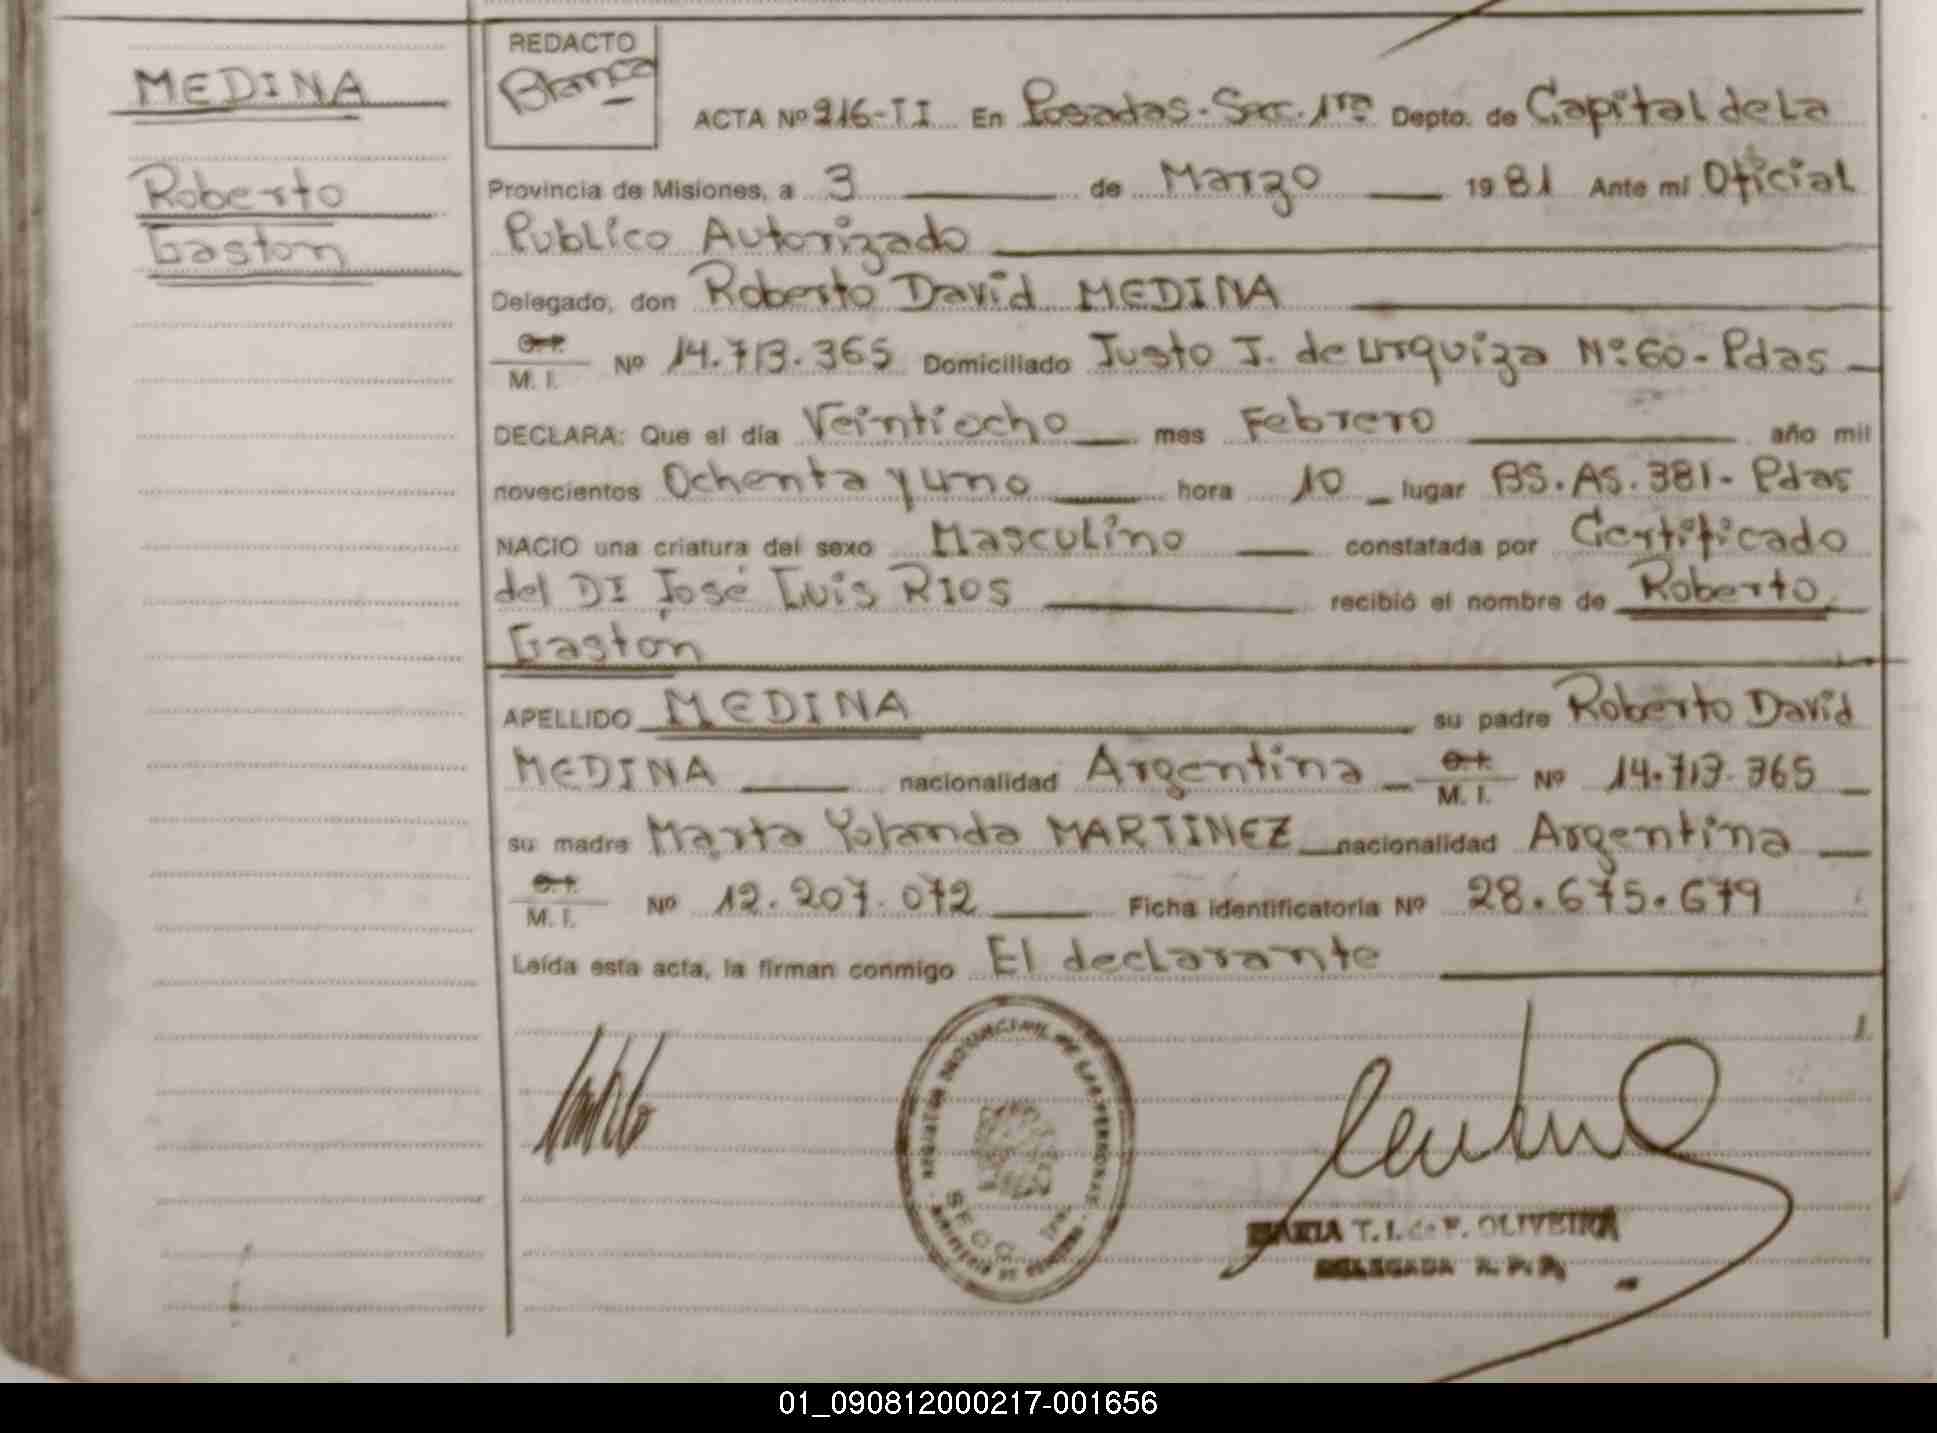 MEDINA
Roberto
Gaston
REDACTO
Blanca
ACTA Nº 216-TI En Posadas-Sec. 1ra Depto. de Capital de La
Provincia de Misiones, a 3 de Marzo 1981 Ante mí Oficial
Publico Autorizado
Delegado, don Roberto David MEDINA
M. I. Nº 14.713.365 Domiciliado Justo J. de Urquiza Nº 60-Pdas
DECLARA: Que el día Veintiocho mes Febrero año mil
novecientos Ochenta y uno hora 10 lugar BS.AS. 381- Pdas
NACIO una criatura del sexo Masculino constatada por Certificado
del DI José Luis RIOS recibió el nombre de Roberto
Gastón
APELLIDO MEDINA su padre Roberto David
MEDINA nacionalidad Argentina M. I. Nº 14.713.365
su madre Marta Yolanda MARTINEZ nacionalidad Argentina
M. I. Nº 12.207.072 Ficha identificatoria Nº 28.675.679
Leída esta acta, la firman conmigo El declarante
REGISTRO PROVINCIAL DE LAS PERSONAS
SECC. 1ra
MARIA T. I. de F. OLIVEIRA
DELEGADA R. P. P.
01_090812000217-001656